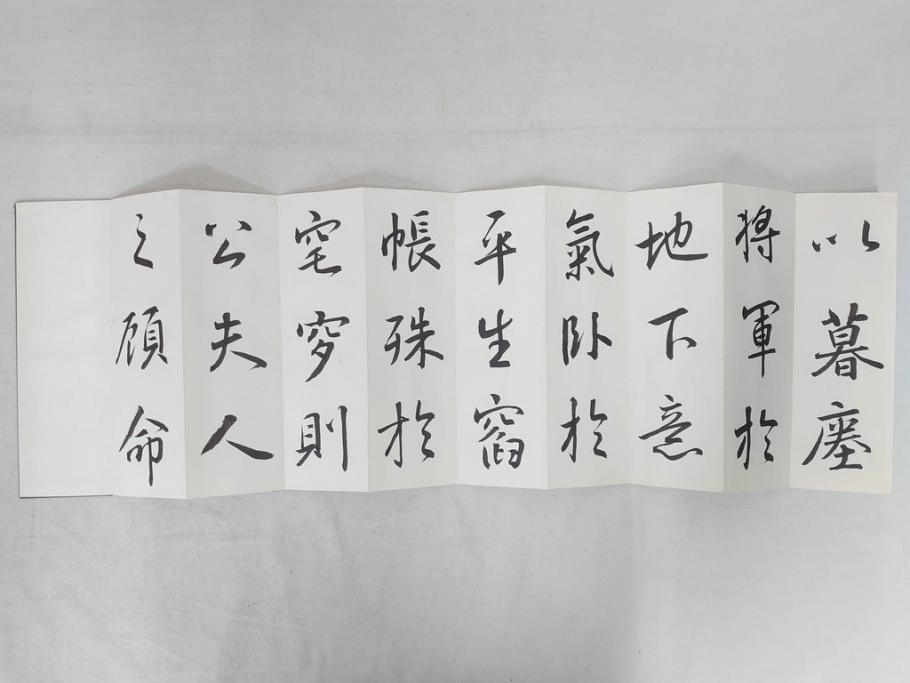 以暮
將軍於
地下意
氣卧於
平生窞
帳殊於
窀穸則
公夫人
之顧命